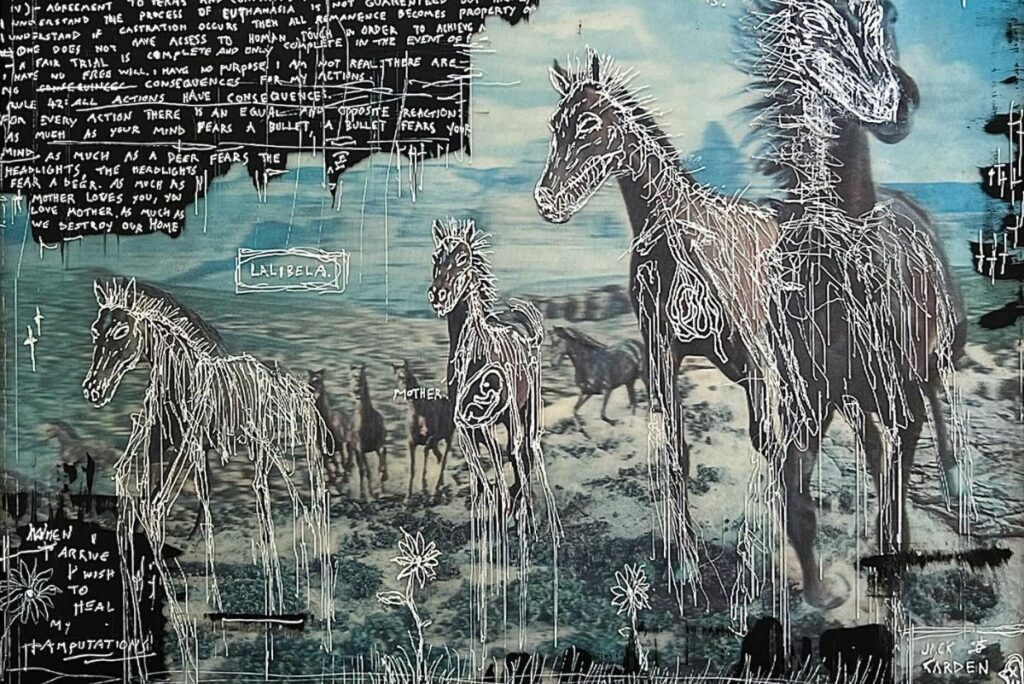 IV) AGREEMENT TO TERMS AND
UNDERSTAND THE PROCESS OF EUTHANASIA IS NOT GUARENTEED BUT
I UNDERSTAND IF CASTRATION OCCURS THEN ALL REMANENCE BECOMES PROPERTY OF
HAVE ASSESS TO HUMAN TOUCH IN ORDER TO ACHIEVE A
ONE DOES NOT
A FAIR TRIAL IS COMPLETE AND ONLY COMPLETE IN THE EVENT OF
I HAVE NO FREE WILL. I HAVE NO PURPOSE. I AM NOT REAL. THERE ARE
NO CONSEQUENCE CONSEQUENCES FOR MY ACTIONS
RULE 42: ALL ACTIONS HAVE CONSEQUENCES.
FOR EVERY ACTION THERE IS AN EQUAL AND OPPOSITE REACTION:
AS MUCH AS YOUR MIND FEARS A BULLET, A BULLET FEARS YOUR
MIND. AS MUCH AS A DEER FEARS THE
HEADLIGHTS, THE HEADLIGHTS
FEAR A DEER. AS MUCH AS
MOTHER LOVES YOU, YOU
LOVE MOTHER. AS MUCH AS
WE DESTROY OUR HOME
LALIBELA.
MOTHER.
WHEN I
ARRIVE
I WISH
TO
HEAL
MY
AMPUTATIONS
JICK
GARDEN